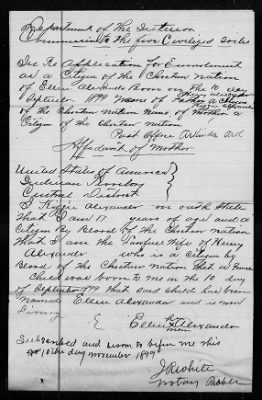 Department of the Interior
Commission to the five Civilized Tribes
In Re Application for Enrollment
as a Citizen of the Choctaw Nation
of Ellen Alexander Born on the 10 day
September 1899 Name of Father a Citizen
of the Choctaw Nation Name of Mother a
Citizen of the Choctaw Nation
Post Office
Affidavit of Mother
United States of America
Indian Territory
Central District
I Alexander on oath State
that I am 17 years of age and a
Citizen By Blood of the Choctaw Nation
that I am the Lawful Wife of Henry
Alexander who is a Citizen by
Blood of the Choctaw Nation that a
Child was born to me on the 10 day
of September 1899 that said child has been
named Ellen Alexander and is now
Living
her
Alexander
mark
Subscribed and sworn to before me this
10th day november 1899
Notary Public